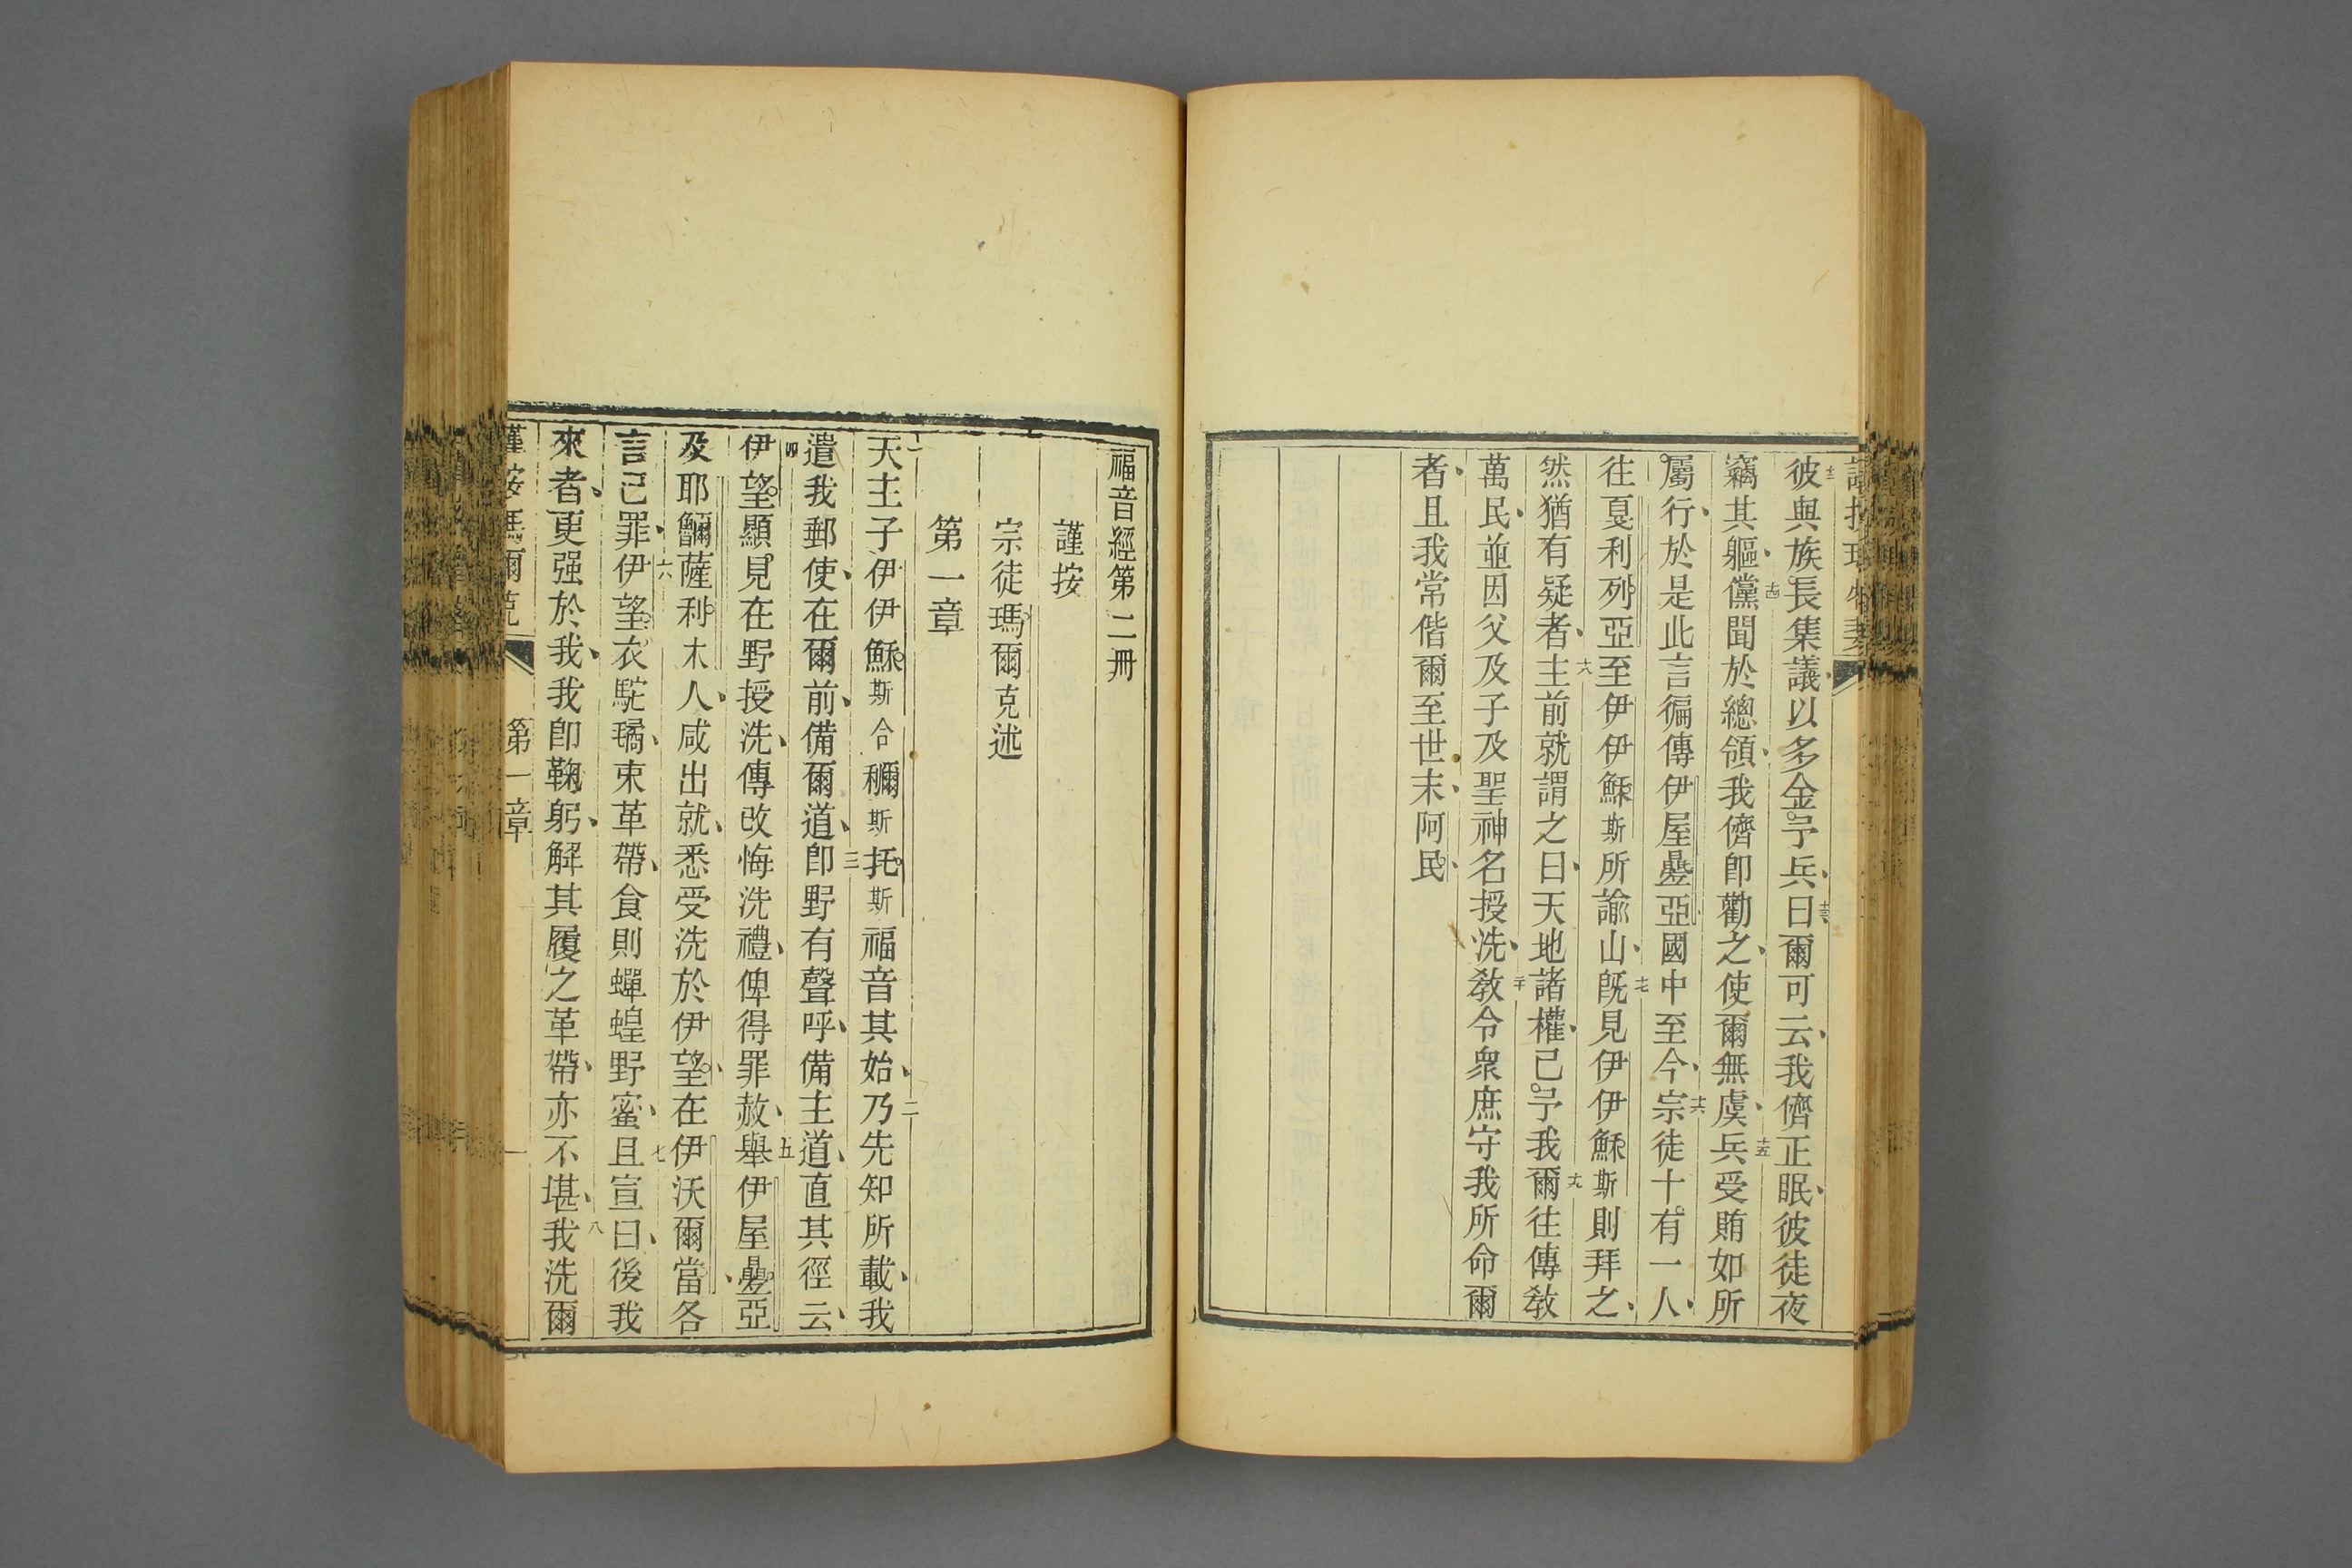 彼與族長集議、以多金予兵、曰、爾可云、我儕正眠、彼徒夜
竊其軀、儻聞於總領、我儕卽勸之、使爾無虞、兵受賄如所
屬行、於是此言徧傳伊屋疊亞國中至今、宗徒十有一人、
往戛利列亞至伊伊穌斯所諭山、旣見伊伊穌斯則拜之、
然猶有疑者、主前就謂之曰、天地諸權、已予我、爾往傳敎
萬民、並因父及子及聖神名授洗、敎令衆庶守我所命爾
者、且我常偕爾至世末、阿民、
福音經第二冊
謹按
宗徒瑪爾克述
第一章
一天主子伊伊穌斯合穪斯托斯福音其始、二乃先知所載、我
遣我郵使、在爾前、備爾道、三卽野有聲呼、備主道、直其徑云、
四伊望顯見在野授洗、傳改悔洗禮、俾得罪赦、五舉伊屋疊亞
及耶穪薩利木人、咸出就、悉受洗於伊望、在伊沃爾當、各
言己罪、六伊望衣駝毼、束革帶、食則蟬蝗野蜜、七且宣曰、後我
來者、更强於我、我卽鞠躬、解其履之革帶、亦不堪、八我洗爾
謹按瑪爾克
第一章
一